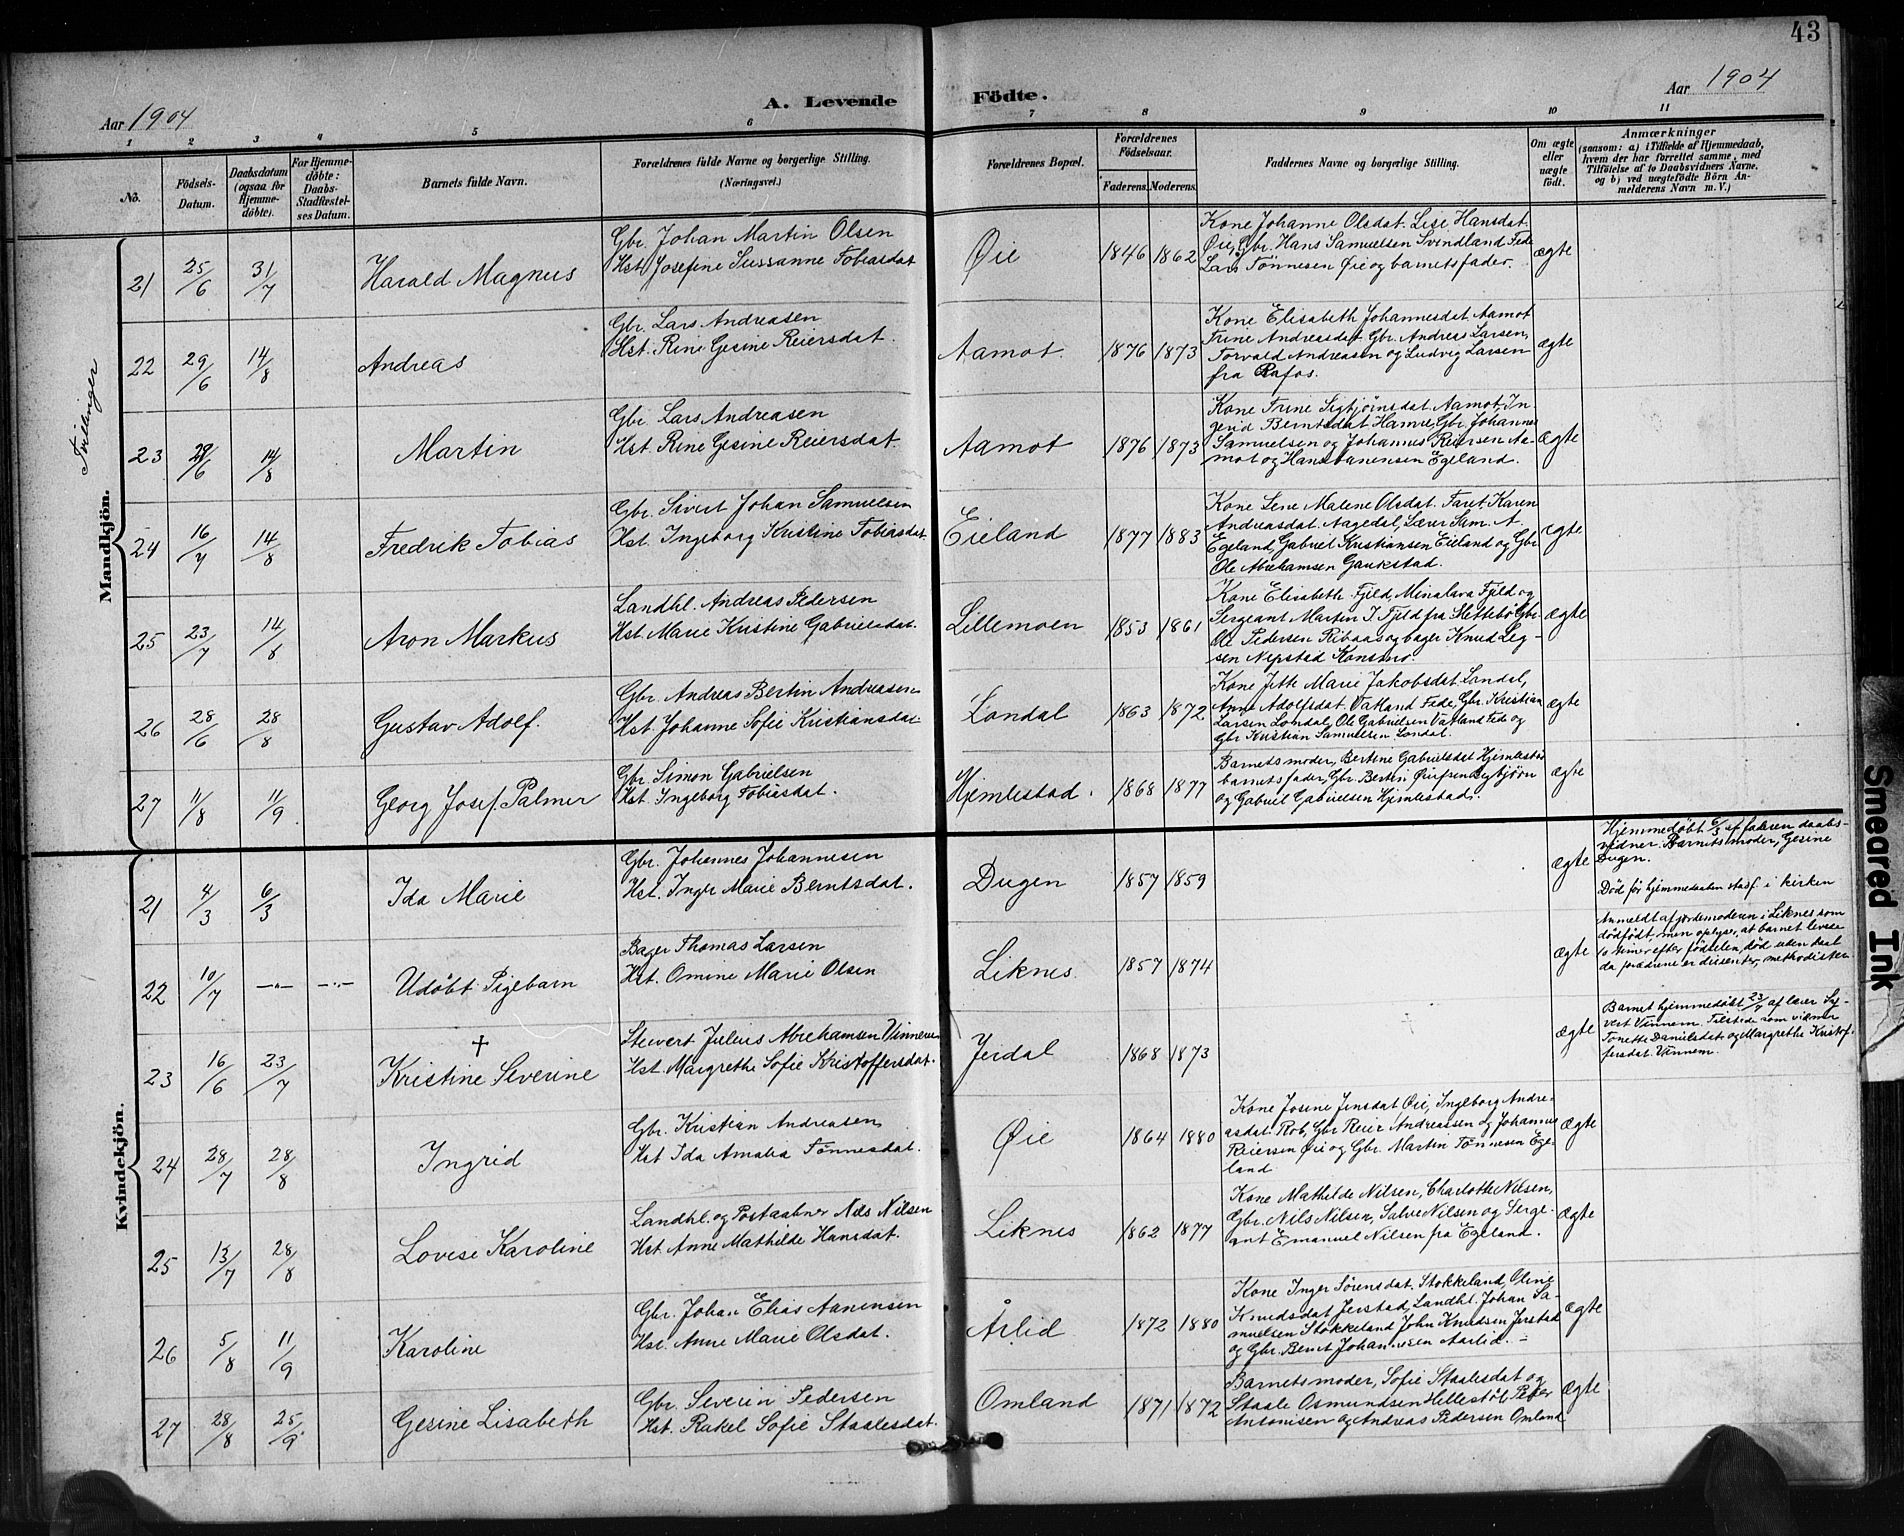 43
Aar 1904
A. Levende
Födte.
Aar 1904
1
2
3
4
5
6
7
8
9
10
11
No.
Födsels-
Datum.
Daabsdatum
(ogsaa for
Hjemme-
döbte).
For Hjemme-
döbte:
Daabs-
Stadfæstel-
ses Datum.
Barnets fulde Navn.
Forældrenes fulde Navne og borgerlige Stilling.
(Næringsvei.)
Forældrenes Bopæl.
Forældrenes
Födselsaar.
Faderens.
Moderens.
Faddernes Navne og borgerlige Stilling.
Om ægte
eller
uægte
födt.
Anmærkninger
(saasom: a) i Tilfælde af Hjemmedaab,
hvem der har forrettet samme, med
Tilföielse af to Daabsvidners Navne.
og b) ved uægtefödte Börn An-
melderens Navn m. V.)
Mandkjön.
Tvillinger
21
25/6
31/7
Harald Magnus
Gbr. Johan Martin Olsen
Hst. Josefine Sussanne Tobiasdat
Øie
1846
1862
Kone Johanne Olsdat. Lise Hansdat.
Øie, Gbr. Hans Samuelsen Svindland Fede
Lars Tønnesen Øie og barnets fader.
ægte
22
29/6
14/8
Andreas
Gbr. Lars Andreasen
Hst. Rine Gesine Reiersdat.
Aamot.
1876
1873
Kone Elisabeth Johannesdat Aamot
Trine Andreasdat Gbr. Andreas Larsen,
Torvald Andreasen og Ludvig Larsen
fra Rafos.
ægte
23
29/6
14/8
Martin
Gbr. Lars Andreasen
Hst. Rine Gesine Reiersdat.
Aamot
1876
1873
Kone Trine Sigbjørnsdat. Aamot, In-
gerid Berntsdat Hamre, Gbr. Johannes
Samuelsen og Johannes Reiersen Aa-
mot og Hans Aanensen Egeland.
ægte
24
16/7
14/8
Fredrik Tobias
Gbr. Sivert Johan Samuelsen
Hst. Ingeborg Kristine Tobiasdat
Eieland
1877
1883
Kone Lene Malene Olsdat. Faret. Karen
Andreasdat. Aagedal, Lærer Sam. A.
Egeland, Gabriel Kristiansen Eieland og Gbr
Ole Abrahamsen Gaukstad.
ægte
25
23/7
14/8
Aron Markus
Landhl. Andreas Pedersen
Hst. Marie Kristine Gabrielsdat.
Lillemoen
1853
1861
Kone Elisabeth Fjeld, Minalava Fjeld og
Sergeant Martin T. Fjeld fra Slettebø Gbr.
Ole Pedersen Ribaas og bager Knud Leg-
sen Nepstad Konsmo.
ægte
26
28/6
28/8
Gustav Adolf.
Gbr. Andreas Bertin Andreasen
Hst. Johanne Sofie Kristiansdat
Londal
1863
1872
Kone Jith Marie Jakobsdat. Londal,
Anne Adolfsdat. Vatland Fede, Gbr. Kristian
Larsen Londal, Ole Gabrielsen Vatland Fede og
Gbr Kristian Samuelsen Londal.
ægte
27
11/8
11/9
Georg Josef Palmer
Gbr. Simon Gabrielsen
Hst. Ingeborg Tobiasdat.
Hjemlestad.
1868
1877
Barnets moder, Bertine Gabrielsdat Hjemlestad
barnets fader, Gbr. Bertin Bygbjørn
og Gabriel Gabrielsen Hjemlestad.
ægte
Kvindekjön.
21
4/3
6/3
Ida Marie
Gbr. Johannes Johannesen
Hst. Inger Marie Berntsdat.
Dugen
1857
1859
ægte
Hjemmedøbt 6/3 af faderen daabs-
vidner. Barnets moder, Gesine
Dugen.
Død før hjemmedaaben stadf. i kirken
22
10/7
—"—
—"—
Udøbt Pigebarn
Bager Thomas Larsen
Hst. Omine Marie Olsen
Liknes.
1857
1874
ægte
Anmeldt af jordemoderen i Liknes som
dødfødt, men oplyses, at barnet levede
10 timer efter fødselen, død uden daab
da forældrene er dissenter, methodister
23
16/6
23/7
†
Kristine Severine
Stuvert Julius Abrahamsen Vinnem
Hst. Margrethe Sofie Kristoffersdat.
Jeidal
1868
1873
ægte
Barnet hjemmedøbt 23/7 af lærer Sy-
vert Vinnem. Tilstede som vidner
Tonette Danielsdat og Margrethe Kristof-
fersdat. Vinnem.
24
28/7
28/8
Ingrid
Gbr. Kristian Andreasen
Hst Ida Amalia Tønnesdat.
Øie
1864
1880
Kone Josine Jensdat Øie, Ingeborg Andre-
asdat. Rob, Gbr Reier Andreassen og Johannes
Reiersen Øie og Gbr. Martin Tønnesen Ege-
land.
ægte
25
13/7
28/8
Lovise Karoline
Landhl. og Postaabner Nils Nilsen
Hst. Anne Mathilde Hansdat.
Liknes
1862
1877
Kone Mathilde Nilsen, Charlotte Nilsen,
Gbr. Nils Nilsen, Salve Nilsen og Serge-
ant Emanuel Nilsen fra Egeland.
ægte
26
5/8
11/9
Karoline
Gbr. Johan Elias Aanensen
Hst. Anne Marie Olsdat.
Årlid
1872
1880
Kone Inger Sørensdat. Stokkeland, Oline
Knudsdat Jerstad, Landhl. Johan Sa-
muelsen Stokkeland John Knudsen Jerstad
og Gbr. Bernt Johannesen Aarlid.
ægte
27
28/8
25/9
Gesine Lisabeth
Gbr. Severin Pedersen
Hst. Rakel Sofie Staalesdat.
Omland
1871
1872
Barnets moder, Sofie Staalesdat og
Staale Osmundsen Hellestøl, Peder
Antonisen og Andreas Pedersen Omland
ægte
Smeared Ink